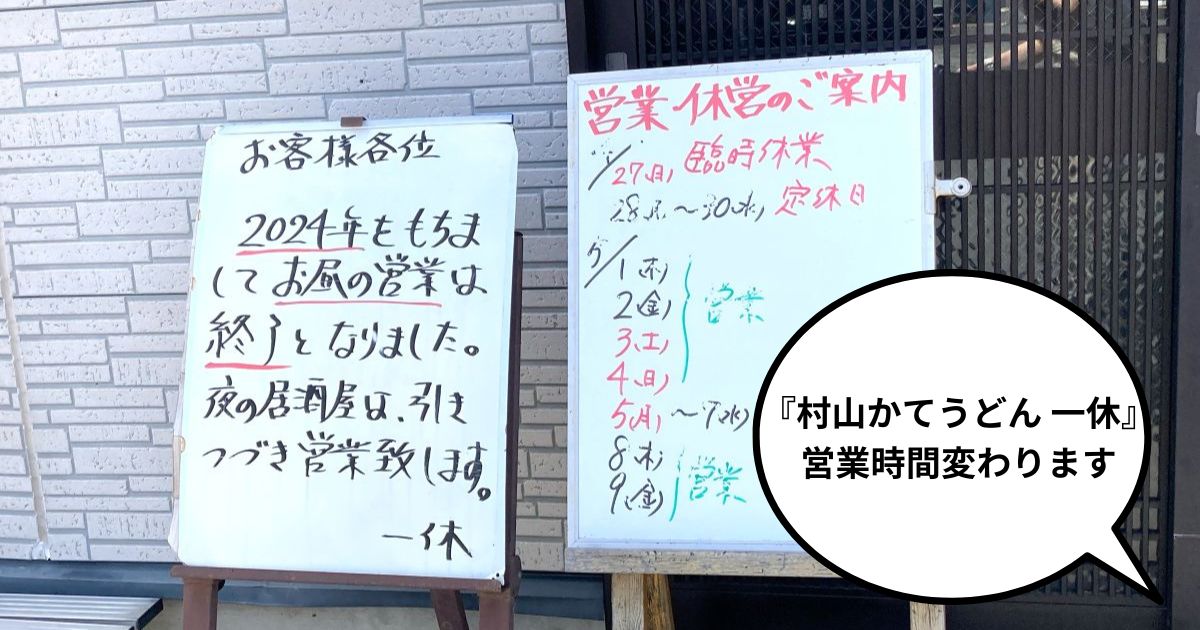 お客様各位
2024年をもちま
してお昼の営業は
終了となりました。
夜の居酒屋は、引き
つづき営業致します。
一休
営業・休営のご案内
27(日) 臨時休業
28(月)〜30(水) 定休日
5/1(木)
2(金)
3(土)
4(日)
営業
5(月)〜7(水)
8(木)
9(金)
営業
『村山かてうどん 一休』
営業時間変わります